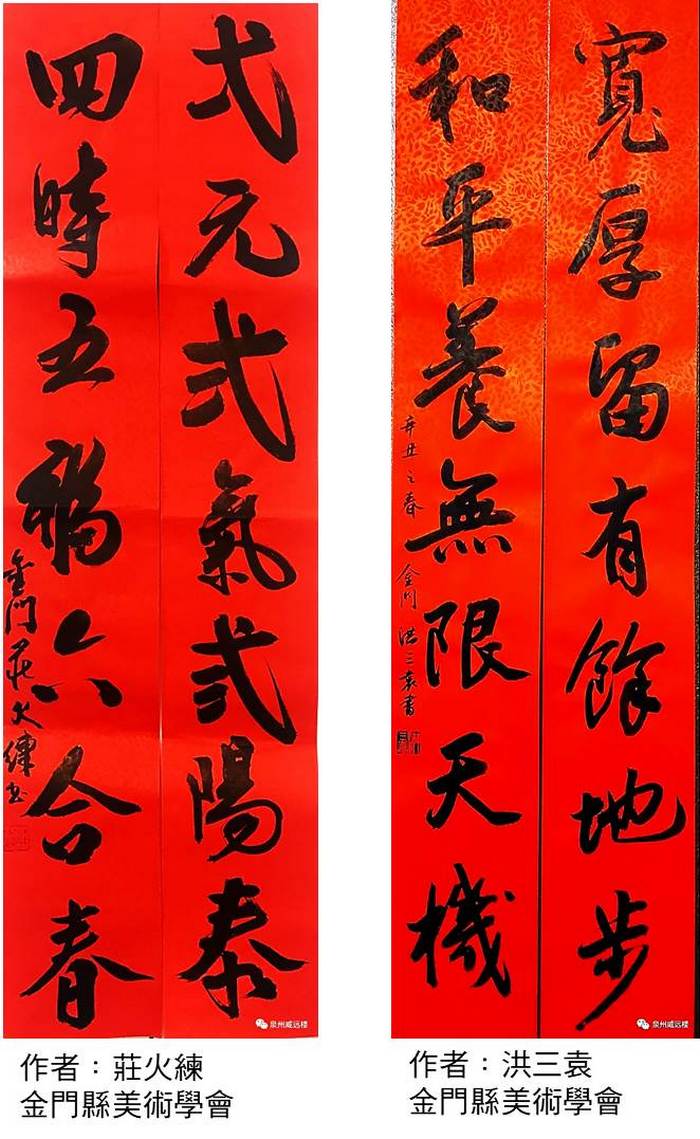 弌元弍氣弎陽泰
四時五福六合春
金門莊火練書
泉州威远楼
作者：莊火練
金門縣美術學會
寬厚留有餘地步
和平養無限天機
辛丑之春 金門 洪三袁書
泉州威远楼
作者：洪三袁
金門縣美術學會